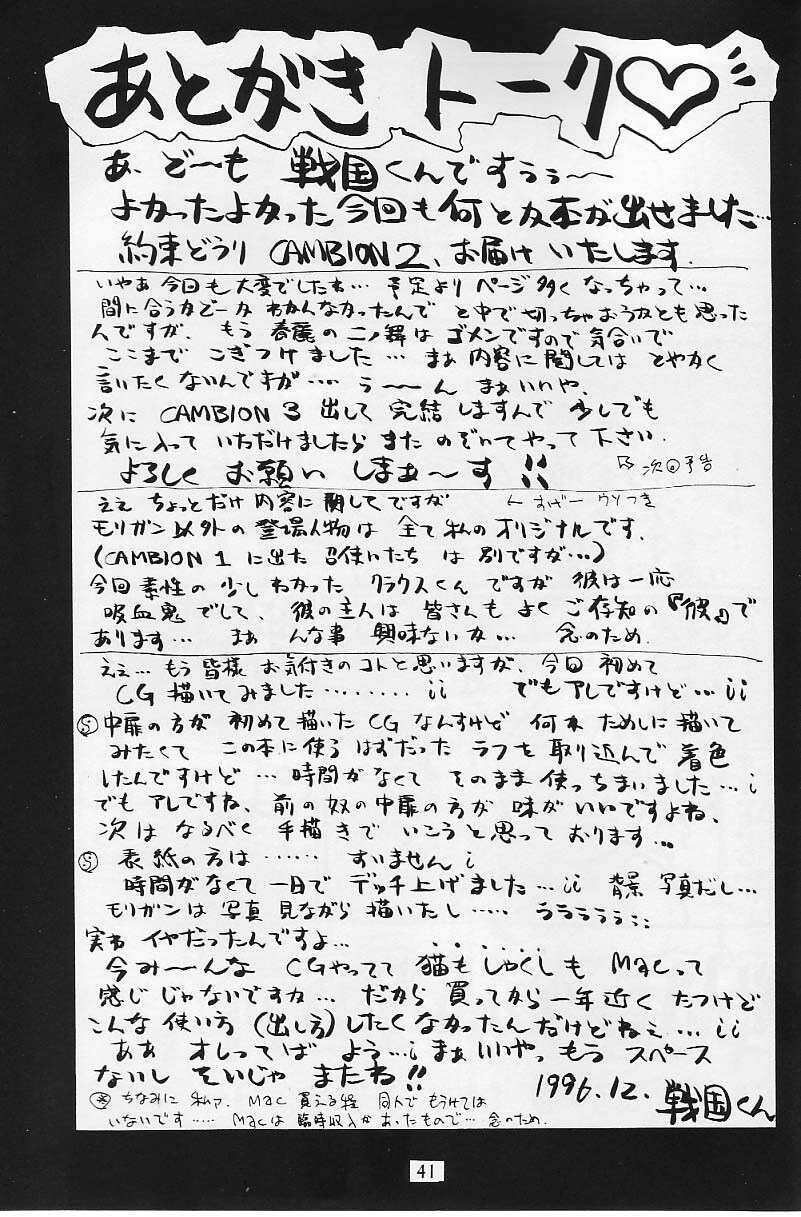 あとがきトーク♡
あ、ど〜も 戦国くんですぅぅ〜
よかったよかった今回も何とか本が出せました…
約束どうり CAMBION 2、お届けいたします.
いやあ今回も大変でしたね… 予定よりページ多くなっちゃって…
間に合うかどーか わかんなかったんで と中で切っちゃおうかとも思った
んですが、もう 春麗の二ノ舞は ゴメンですので気合いで
ここまで こぎつけました… まぁ内容に関しては とやかく
言いたくないんですが…. う〜〜ん まぁいいや、
次に CAMBION 3 出して 完結しますんで 少しでも
気に入って いただけましたら また のぞいてやって下さい.
よろしく お願い しまぁ〜す!!
次回予告
ええ ちょっとだけ 内容に関してですが
← すげー ウソつき
モリガン以外の登場人物は 全て私のオリジナルです.
(CAMBION 1 に出た 召使いたち は 別ですが…)
今回素性の少しわかった クラウスくん ですが 彼は一応
吸血鬼でして、彼の主人は 皆さんも よくご存知の『彼』で
あります… まぁ んな事 興味ないか… 念のため.
ええ… もう皆様 お気付きのコトと思いますが、今回初めて
CG 描いてみました……… ¡¡ でもアレですけど…¡¡
Ⓢ中扉の方が 初めて描いた CG なんすけど 何か ためしに描いて
みたくて この本に使うはずだった ラフを取り込んで 着色
したんですけど… 時間がなくて そのまま使っちまいました…¡
でも アレですね、前の奴の中扉の方が 味がいいですよね、
次は なるべく 手描きで いこうと思って おります…
Ⓢ 表紙の方は …… すいません¡
時間がなくて 一日で デッチ上げました…¡¡ 背景 写真だし…
モリガンは 写真 見ながら 描いたし ….. うううううう;;
実わ イヤだったんですよ…
今み〜〜んな CGやってて 猫もしゃくしも Macって
感じじゃないですか… だから 買ってから一年近く たつけど
こんな 使い方 (出し方) したくなかったんだけどねぇ…¡¡
ああ オレってば よう…¡ まぁいいやっ もう スペース
ないし そいじゃ またね!!
1996.12. 戦国くん
※ ちなみに 私ァ、Mac 買える程 同人で もうけては
いないです….. Macは 臨時収入が あったもので… 念のため.
41